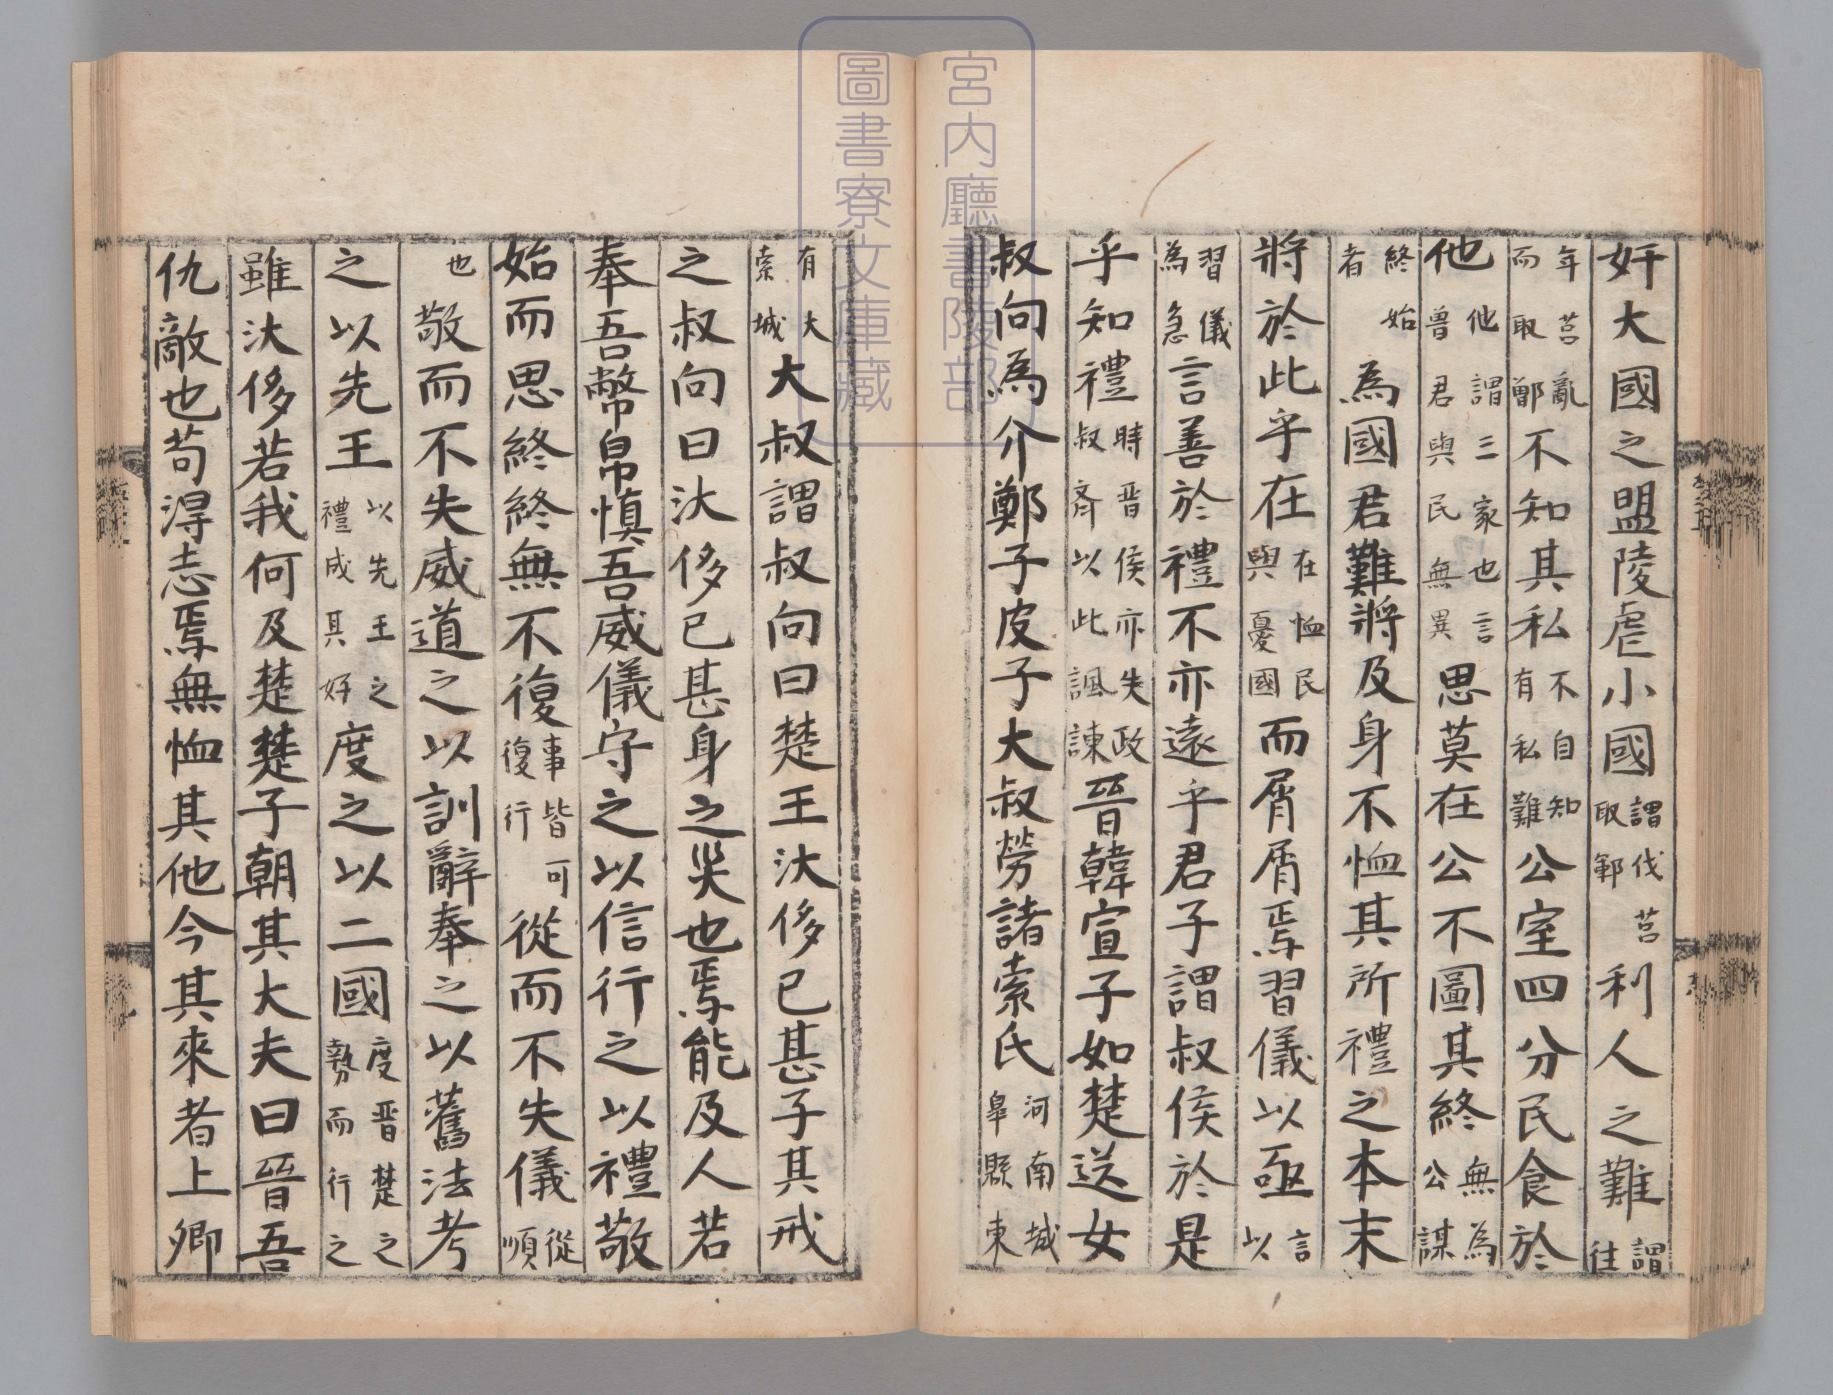 奸大國之盟陵虐小國謂伐莒取鄆利人之難謂往
年莒亂而取鄫不知其私不自知有私難公室四分民食於
他他謂三家也言魯君與民無異思莫在公不圖其終無為公謀
終始者為國君難將及身不恤其所禮之本末
將於此乎在在恤民與憂國而屑屑焉習儀以亟言以
習儀為急言善於禮不亦遠乎君子謂叔侯於是
乎知禮時晉侯亦失政叔齊以此諷諫晉韓宣子如楚送女
叔向為介鄭子皮子大叔勞諸索氏河南城皐縣東
有大索城大叔謂叔向曰楚王汰侈已甚子其戒
之叔向曰汰侈已甚身之災也焉能及人若
奉吾幣帛慎吾威儀守之以信行之以禮敬
始而思終終無不復事皆可復行從而不失儀從順
也敬而不失威道之以訓辭奉之以舊法考
之以先王以先王之禮成其好度之以二國度晉楚之勢而行之
雖汏侈若我何及楚楚子朝其大夫曰晉吾
仇敵也苟得志焉無恤其他今其來者上卿
宮內廳書陵部
圖書寮文庫藏